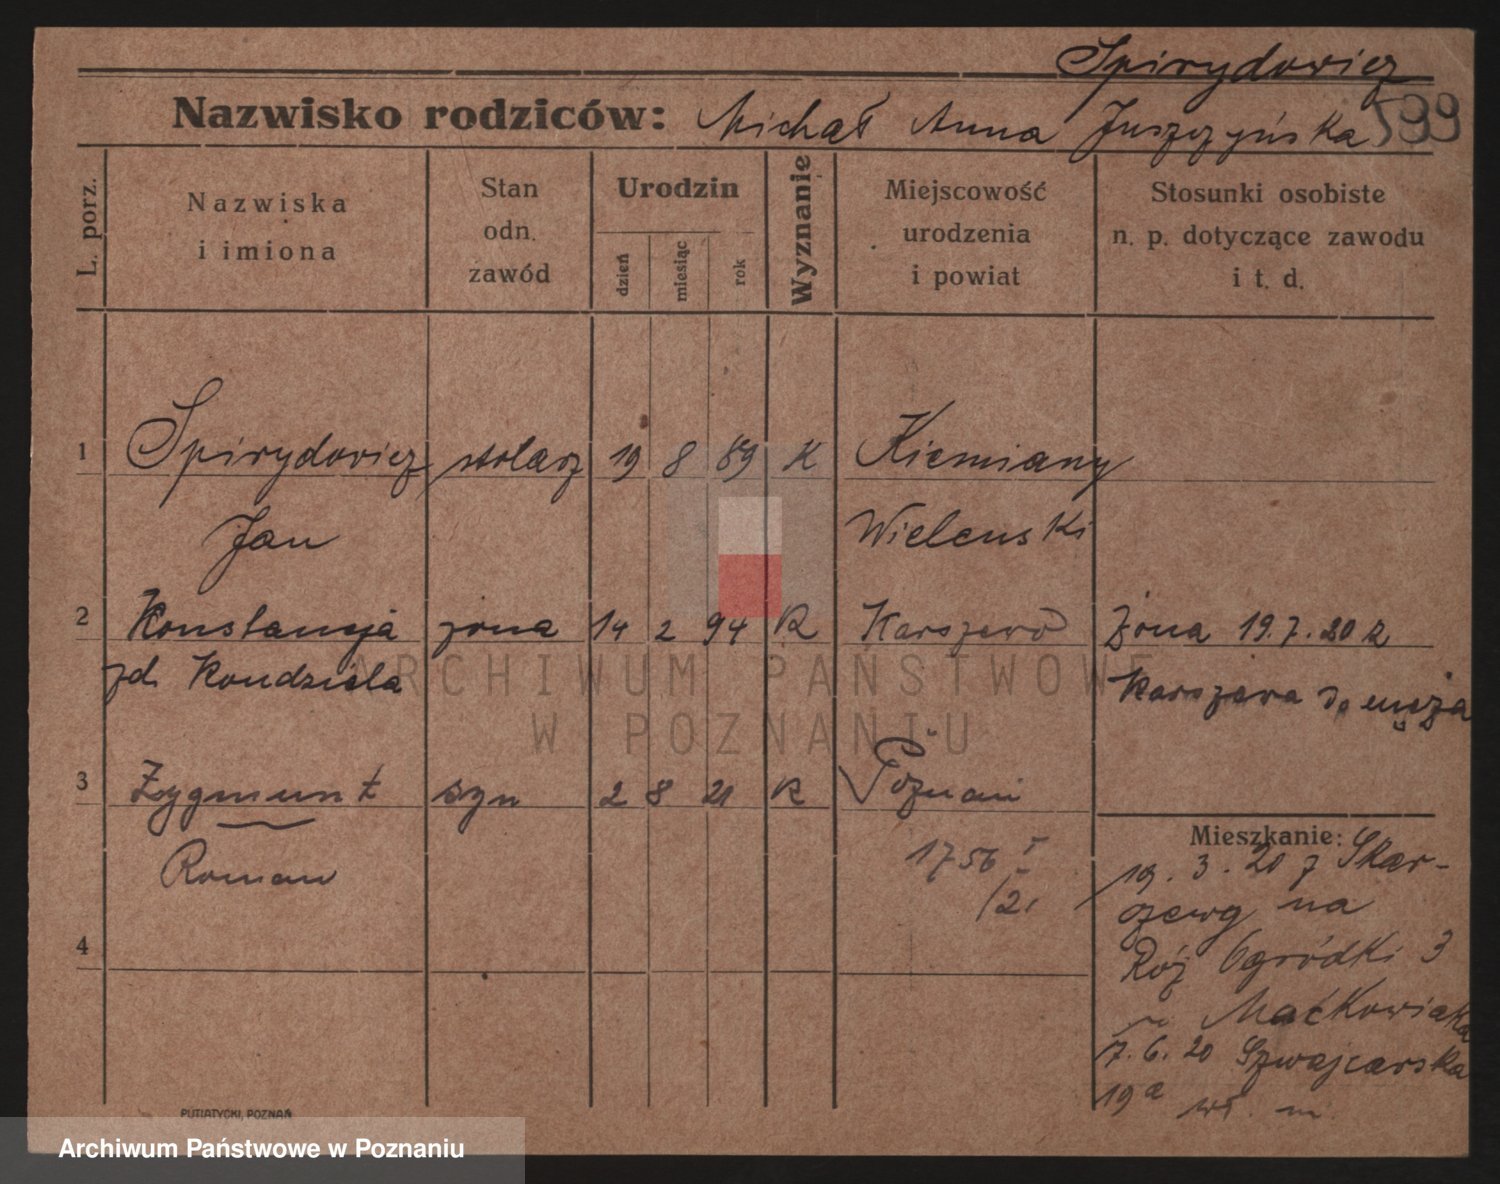 Spirydowicz
Nazwisko rodziców: Michał Anna Juszczyńska 599
L. porz.
Nazwiska
i imiona
Stan
odn.
zawód
Urodzin
dzień
miesiąc
rok
Wyznanie
Miejscowość
urodzenia
i powiat
Stosunki osobiste
n. p. dotyczące zawodu
i t. d.
1 Spirydowicz stolarz 19 8 89 K Kiemiany
Jan Wielenski
2 Konstancja żona 14 2 94 K Karszewo Żona 19.7.20 z
zd. Kondziela Karszewa do męża
3 Zygmunt syn 2 8 21 K Poznań
Roman
1756 I
/21
4
Mieszkanie: Skar-
19. 3. 20 z
szewy na
Róż Ogródki 3
Maćkowiaka
7. 6. 20 Szwajcarska
19a wł. m
PUTIATYCKI, POZNAŃ
ARCHIWUM PAŃSTWOWE
W POZNANIU
Archiwum Państwowe w Poznaniu